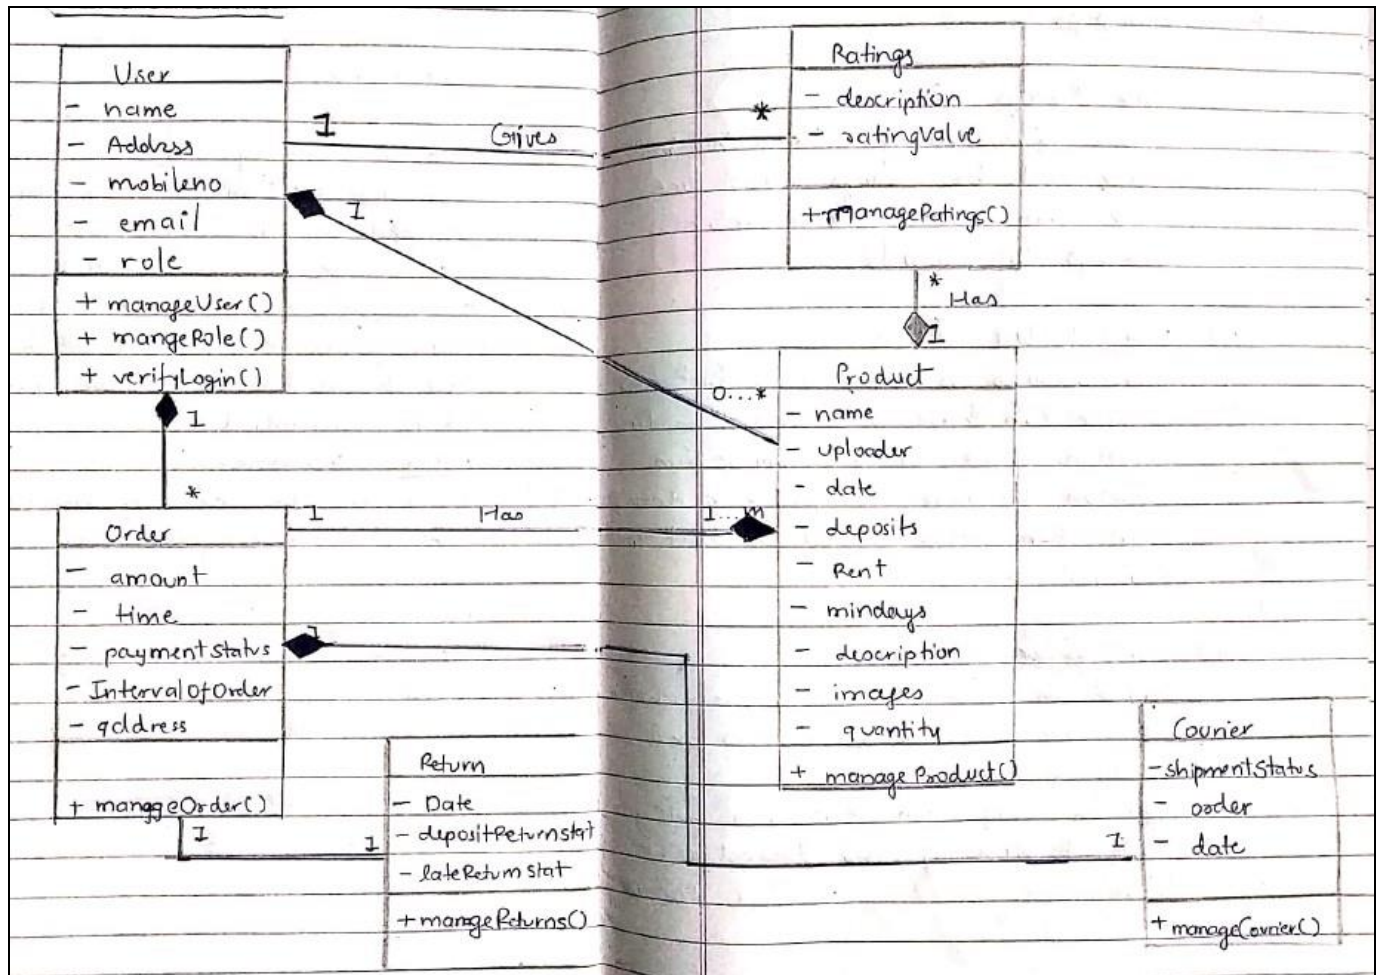 User
- name
- Address
- mobileno
- email
- role
+ manageUser()
+ mangeRole()
+ verifyLogin()
1
Gives
*
Ratings
- description
- ratingvalue
+ manageRatings()
1
0...*
*
Has
1
1
*
Product
- name
- uploader
- date
- deposits
- Rent
- mindays
- description
- images
- quantity
+ manageProduct()
Order
- amount
- time
- paymentstatus
- IntervalOfOrder
- address
+ manageOrder()
1
Has
1...m
1
1
1
1
Return
- Date
- depositReturnstat
- lateReturnstat
+ manageReturns()
Courier
- shipmentStatus
- order
- date
+ manageCourier()